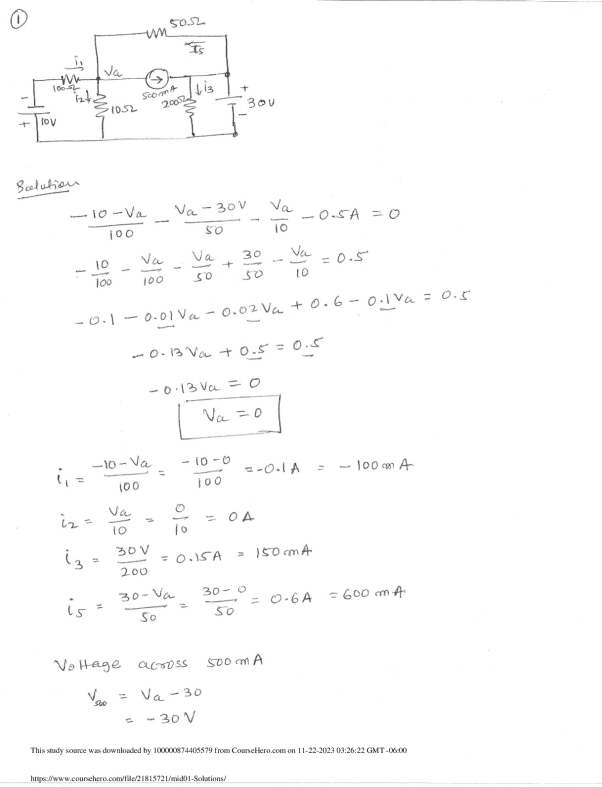 ①
50Ω
I5
i1
Va
100Ω
i2↓
10Ω
500mA
200Ω
↓i3
+
30V
-
-
+
10V
Solution
(-10-Va)/100 - (Va-30V)/50 - Va/10 - 0.5A = 0
-10/100 - Va/100 - Va/50 + 30/50 - Va/10 = 0.5
-0.1 - 0.01Va - 0.02Va + 0.6 - 0.1Va = 0.5
-0.13Va + 0.5 = 0.5
-0.13Va = 0
Va = 0
i1 = (-10-Va)/100 = (-10-0)/100 = -0.1A = -100mA
i2 = Va/10 = 0/10 = 0A
i3 = 30V/200 = 0.15A = 150mA
i5 = (30-Va)/50 = (30-0)/50 = 0.6A = 600mA
Voltage across 500mA
V500 = Va - 30
= -30V
This study source was downloaded by 100000874405579 from CourseHero.com on 11-22-2023 03:26:22 GMT -06:00
https://www.coursehero.com/file/21815721/mid01-Solutions/